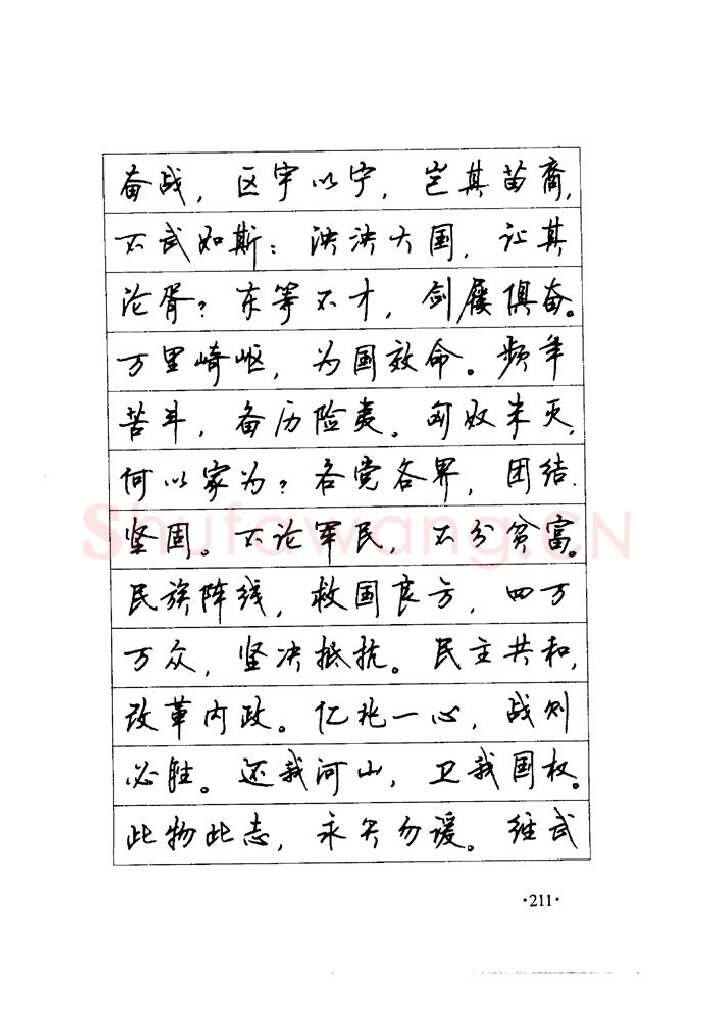 奋战，区宇以宁，岂其苗裔，
不武如斯：泱泱大国，让其
沦胥？东等不才，剑屦俱奋。
万里崎岖，为国效命。频年
苦斗，备历险夷。匈奴未灭，
何以家为？各党各界，团结
坚固。不论军民，不分贫富。
民族阵线，救国良方，四万
万众，坚决抵抗。民主共和，
改革内政。亿兆一心，战则
必胜。还我河山，卫我国权。
此物此志，永矢勿谖。经武
·211·
Shufawang.CN